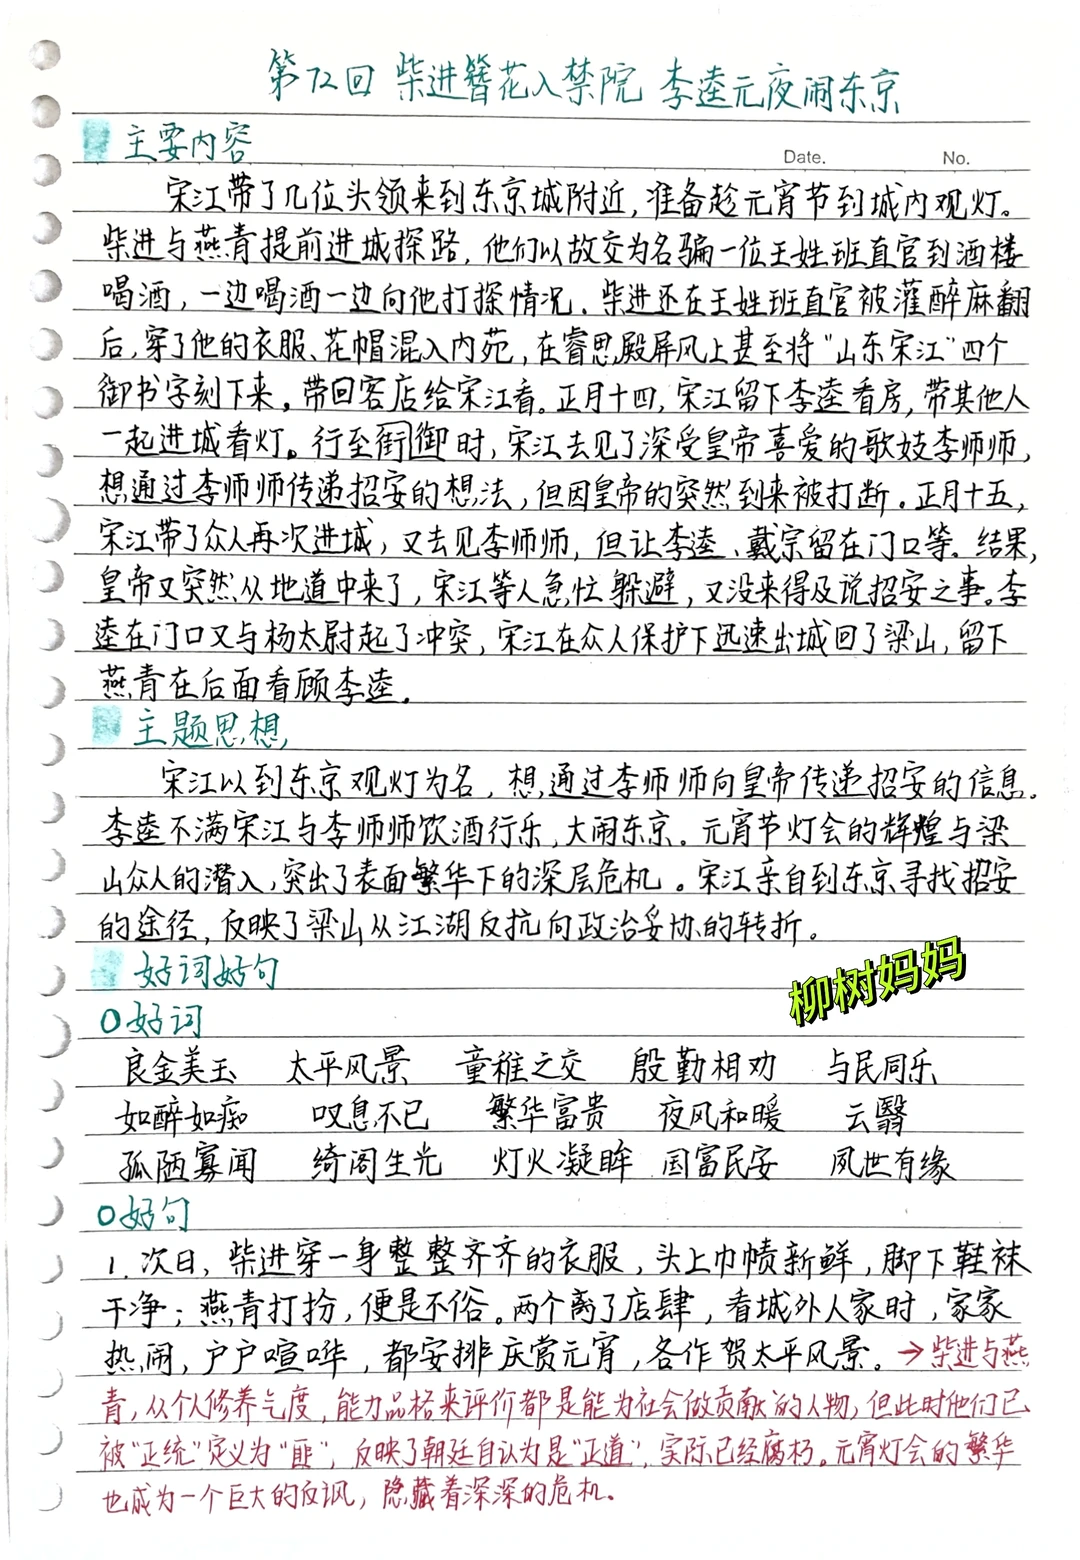 第72回 柴进簪花入禁院 李逵元夜闹东京
主要内容
Date. No.
宋江带了几位头领来到东京城附近,准备趁元宵节到城内观灯。
柴进与燕青提前进城探路,他们以故交为名骗一位王姓班直官到酒楼
喝酒,一边喝酒一边向他打探情况.柴进还在王姓班直官被灌醉麻翻
后,穿了他的衣服、花帽混入内苑,在睿思殿屏风上甚至将"山东宋江"四个
御书字刻下来。带回客店给宋江看。正月十四,宋江留下李逵看房,带其他人
一起进城看灯。行至街御时,宋江去见了深受皇帝喜爱的歌妓李师师,
想通过李师师传递招安的想法,但因皇帝的突然到来被打断.正月十五,
宋江带了众人再次进城,又去见李师师,但让李逵、戴宗留在门口等.结果,
皇帝又突然从地道中来了,宋江等人急忙躲避,又没来得及说招安之事。李
逵在门口又与杨太尉起了冲突,宋江在众人保护下迅速出城回了梁山,留下
燕青在后面看顾李逵.
主题思想
宋江以到东京观灯为名,想通过李师师向皇帝传递招安的信息.
李逵不满宋江与李师师饮酒行乐,大闹东京.元宵节灯会的辉煌与梁
山众人的潜入,突出了表面繁华下的深层危机。宋江亲自到东京寻找招安
的途径,反映了梁山从江湖反抗向政治妥协的转折。
好词好句
柳树妈妈
O好词
良金美玉 太平风景 童稚之交 殷勤相劝 与民同乐
如醉如痴 叹息不已 繁华富贵 夜风和暖 云翳
孤陋寡闻 绮阁生光 灯火凝眸 国富民安 夙世有缘
O好句
1.次日,柴进穿一身整整齐齐的衣服,头上巾帻新鲜,脚下鞋袜
干净;燕青打扮,便是不俗。两个离了店肆,看城外人家时,家家
热闹,户户喧哗,都安排庆赏元宵,各作贺太平风景。→柴进与燕
青,从个人修养气度,能力品格来评价都是能为社会做贡献的人物,但此时他们已
被"正统"定义为"匪",反映了朝廷自认为是"正道",实际已经腐朽。元宵灯会的繁华
也成为一个巨大的反讽,隐藏着深深的危机.